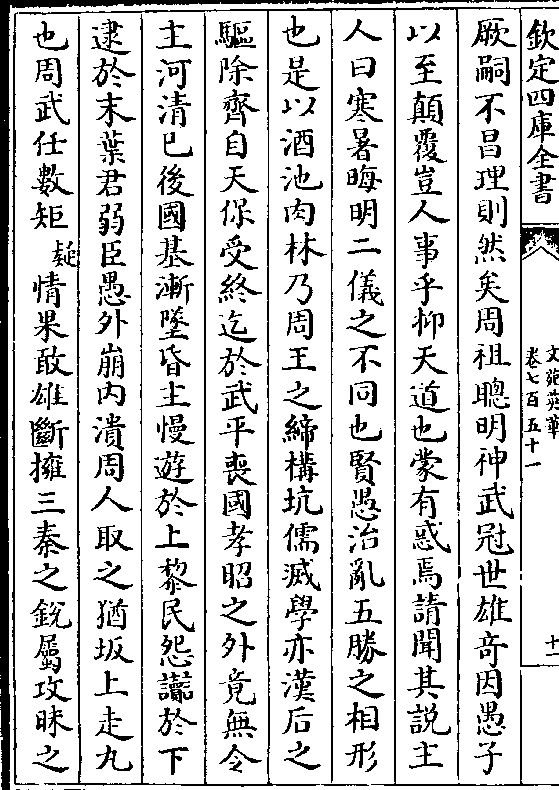 欽定四庫全書
文苑英華
卷七百五十一
十一
厥嗣不昌理則然矣周祖聰明神武冠世雄奇因愚子
以至顛覆豈人事乎抑天道也蒙有惑焉請聞其說主
人曰寒暑晦明二儀之不同也賢愚治亂五勝之相形
也是以酒池肉林乃周王之締構坑儒滅學亦漢后之
驅除齊自天保受終迄於武平喪國孝昭之外竟無令
主河清已後國基漸墜昏主慢遊於上黎民怨讟於下
逮於末葉君弱臣愚外崩内潰周人取之猶坂上走九
也周武任數矩疑情果敢雄斷擁三秦之銳屬攻昧之